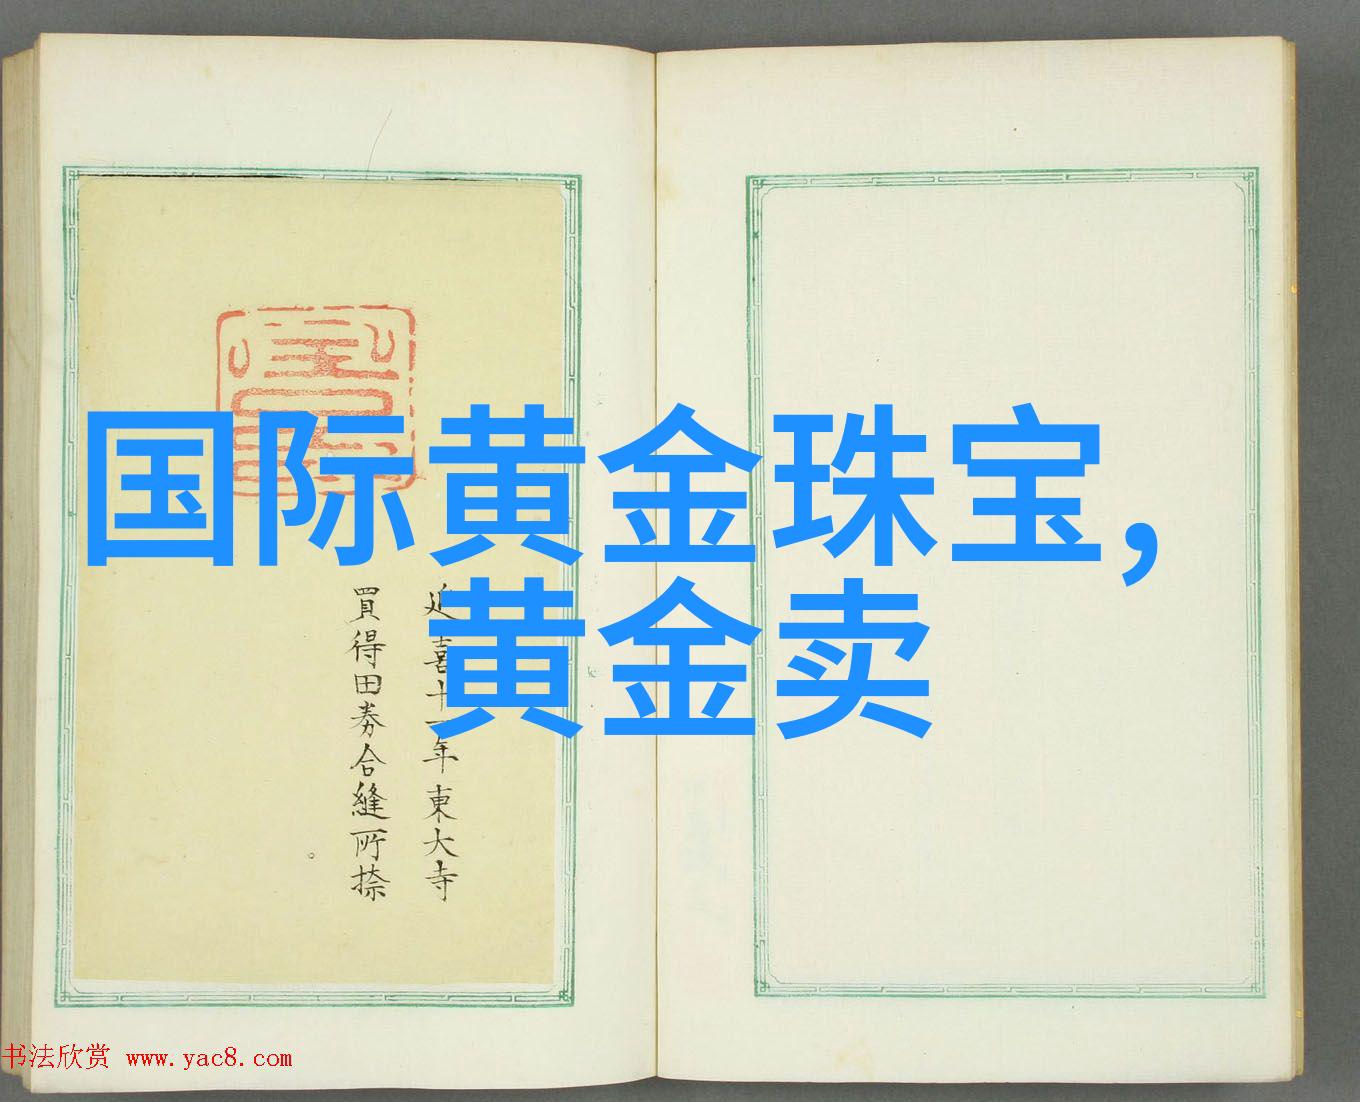 国际黄金珠宝,
黄金卖
延喜十一年東大寺
買得田券合縫所捺
书法欣赏 www.yac8.com